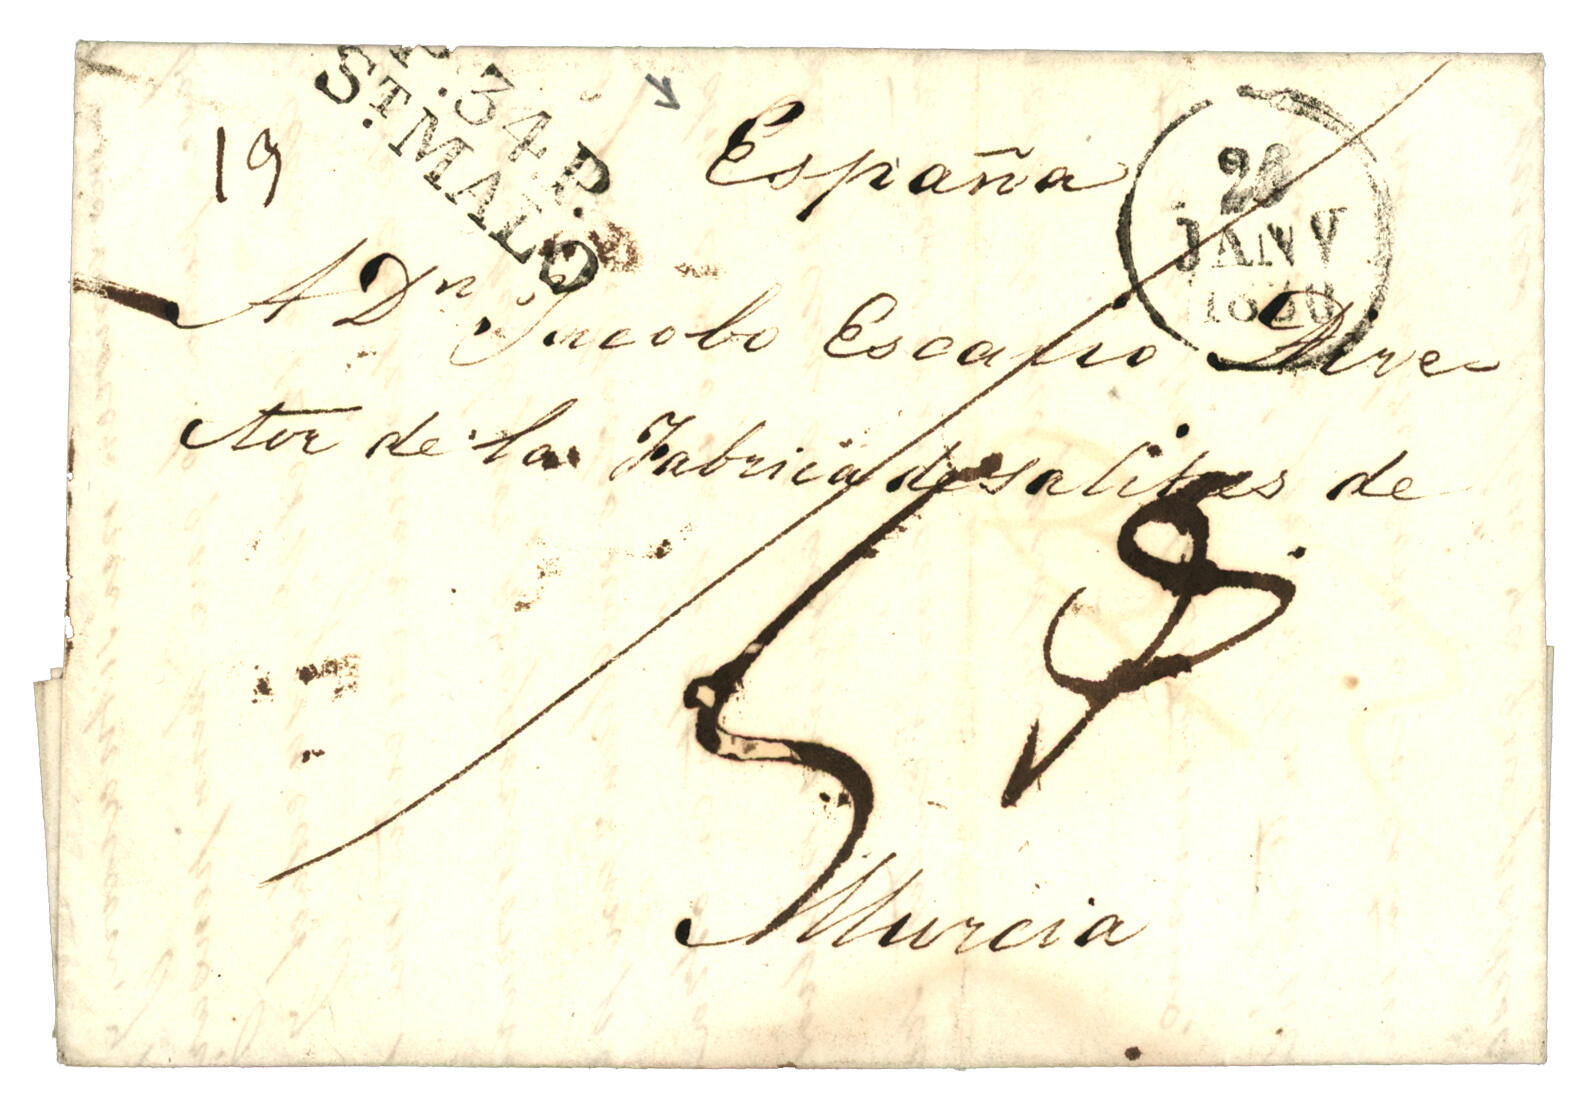 P.34.P.
St. MALO
19
España
28
JANV
1830
A Dn. Jacobo Escario Dire-
ctor de la Fabrica de Salitres de
Murcia